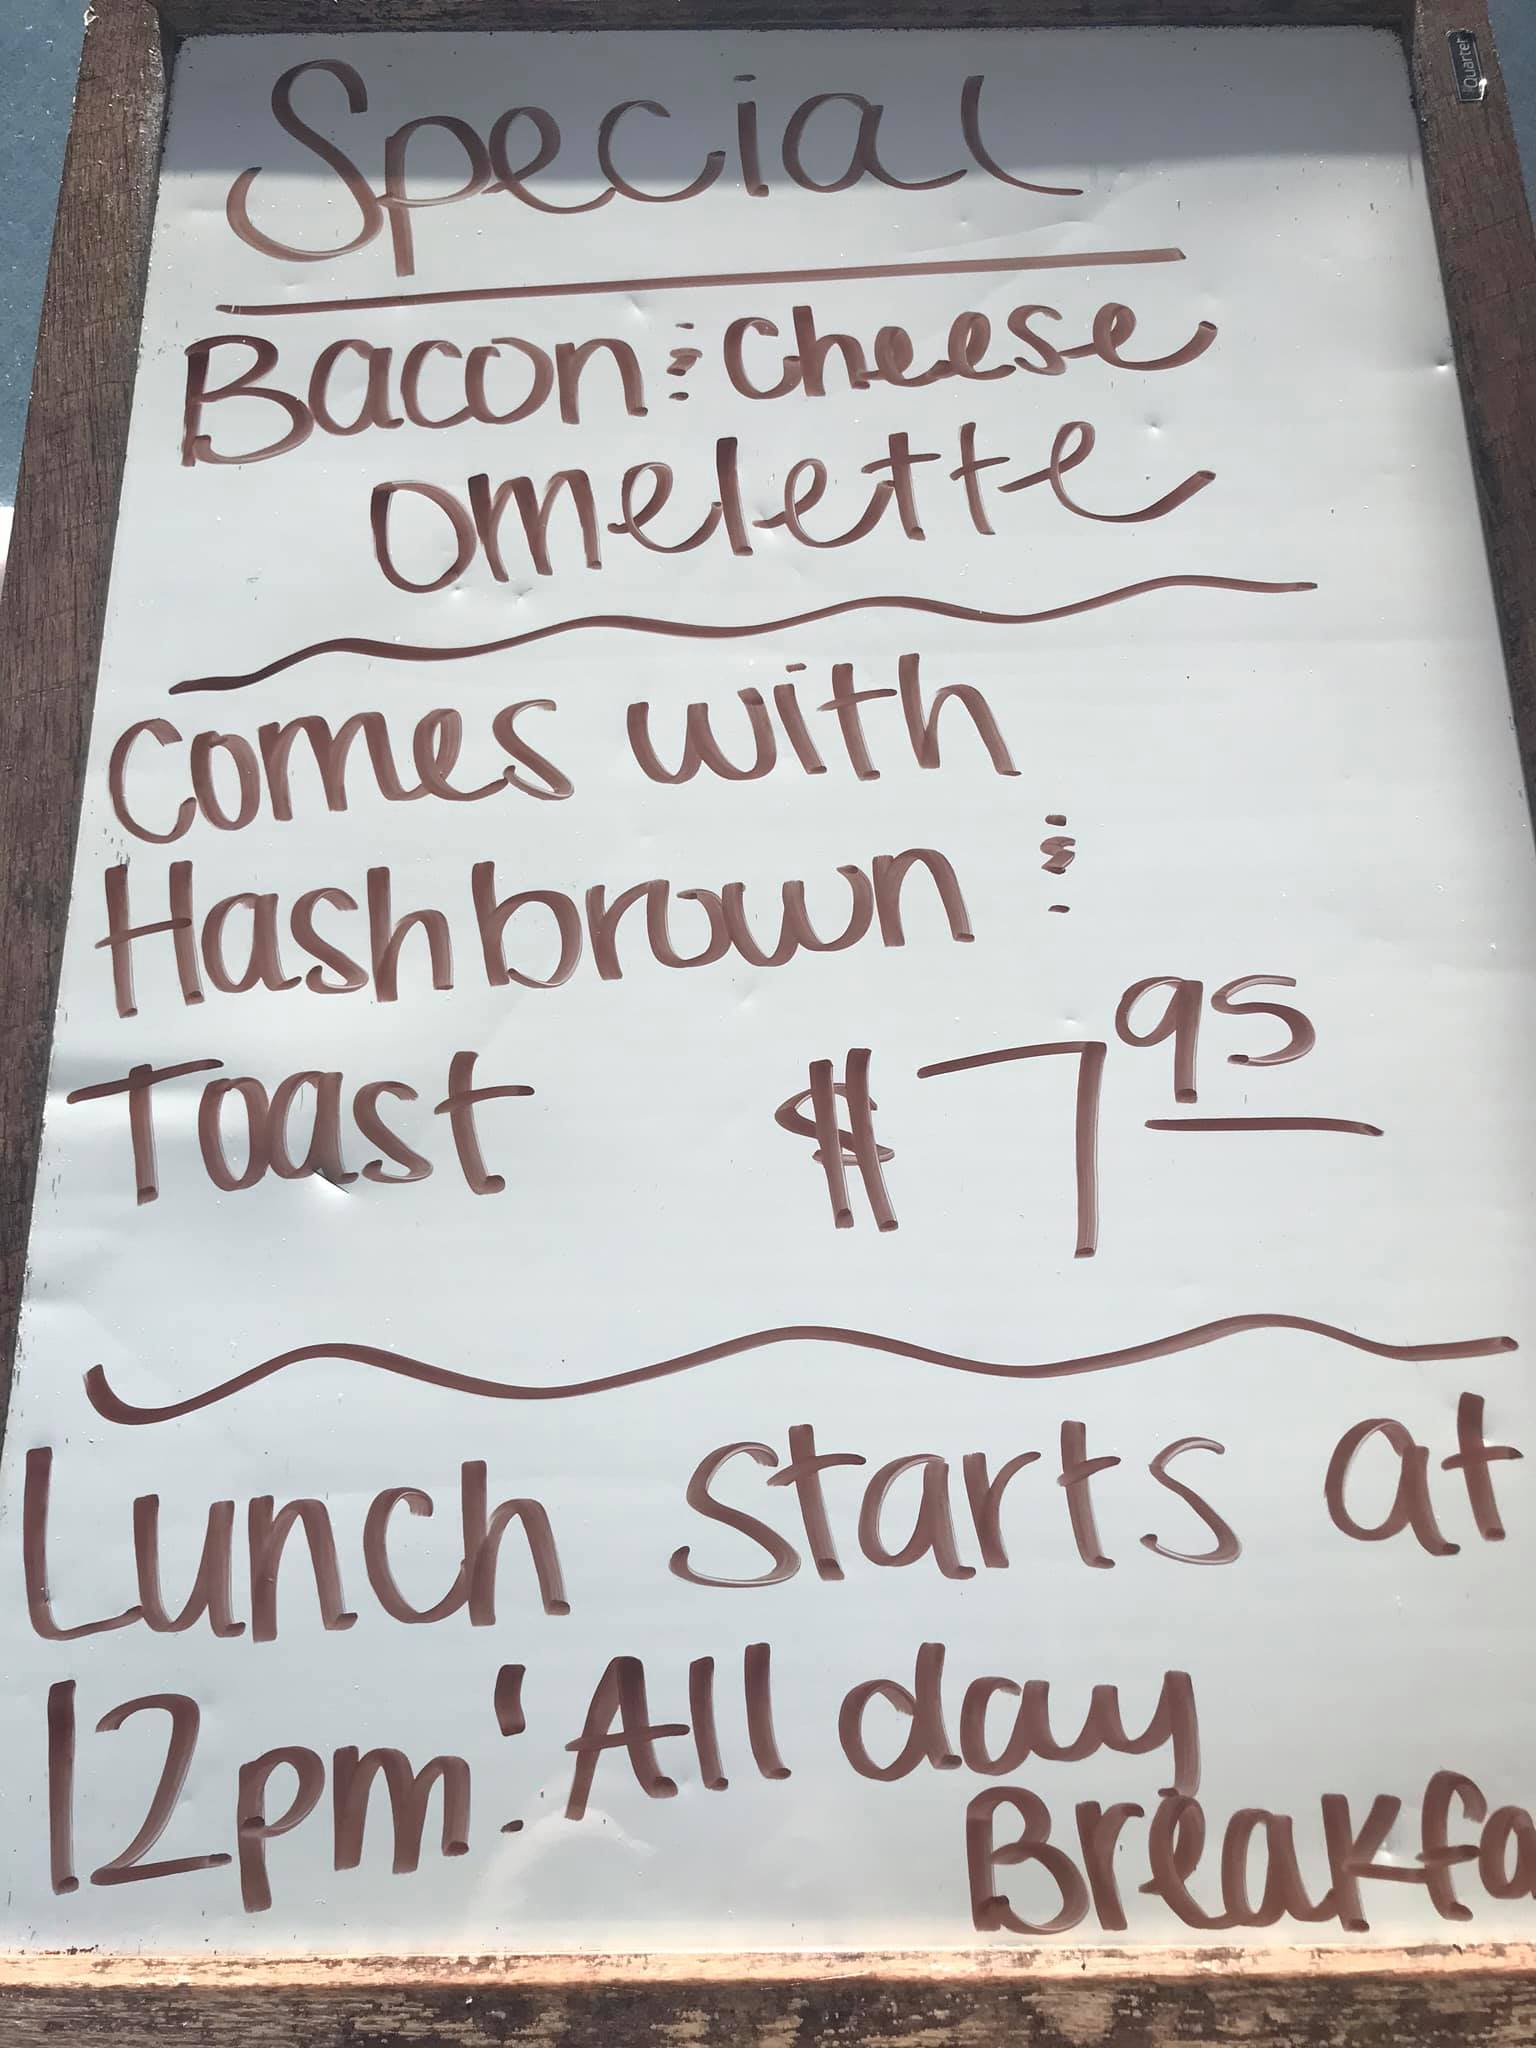 Special
Bacon & Cheese
omelette
Comes with
Hashbrown &
Toast $7.95
Lunch Starts at
12pm! All day
Breakfa
Quartet